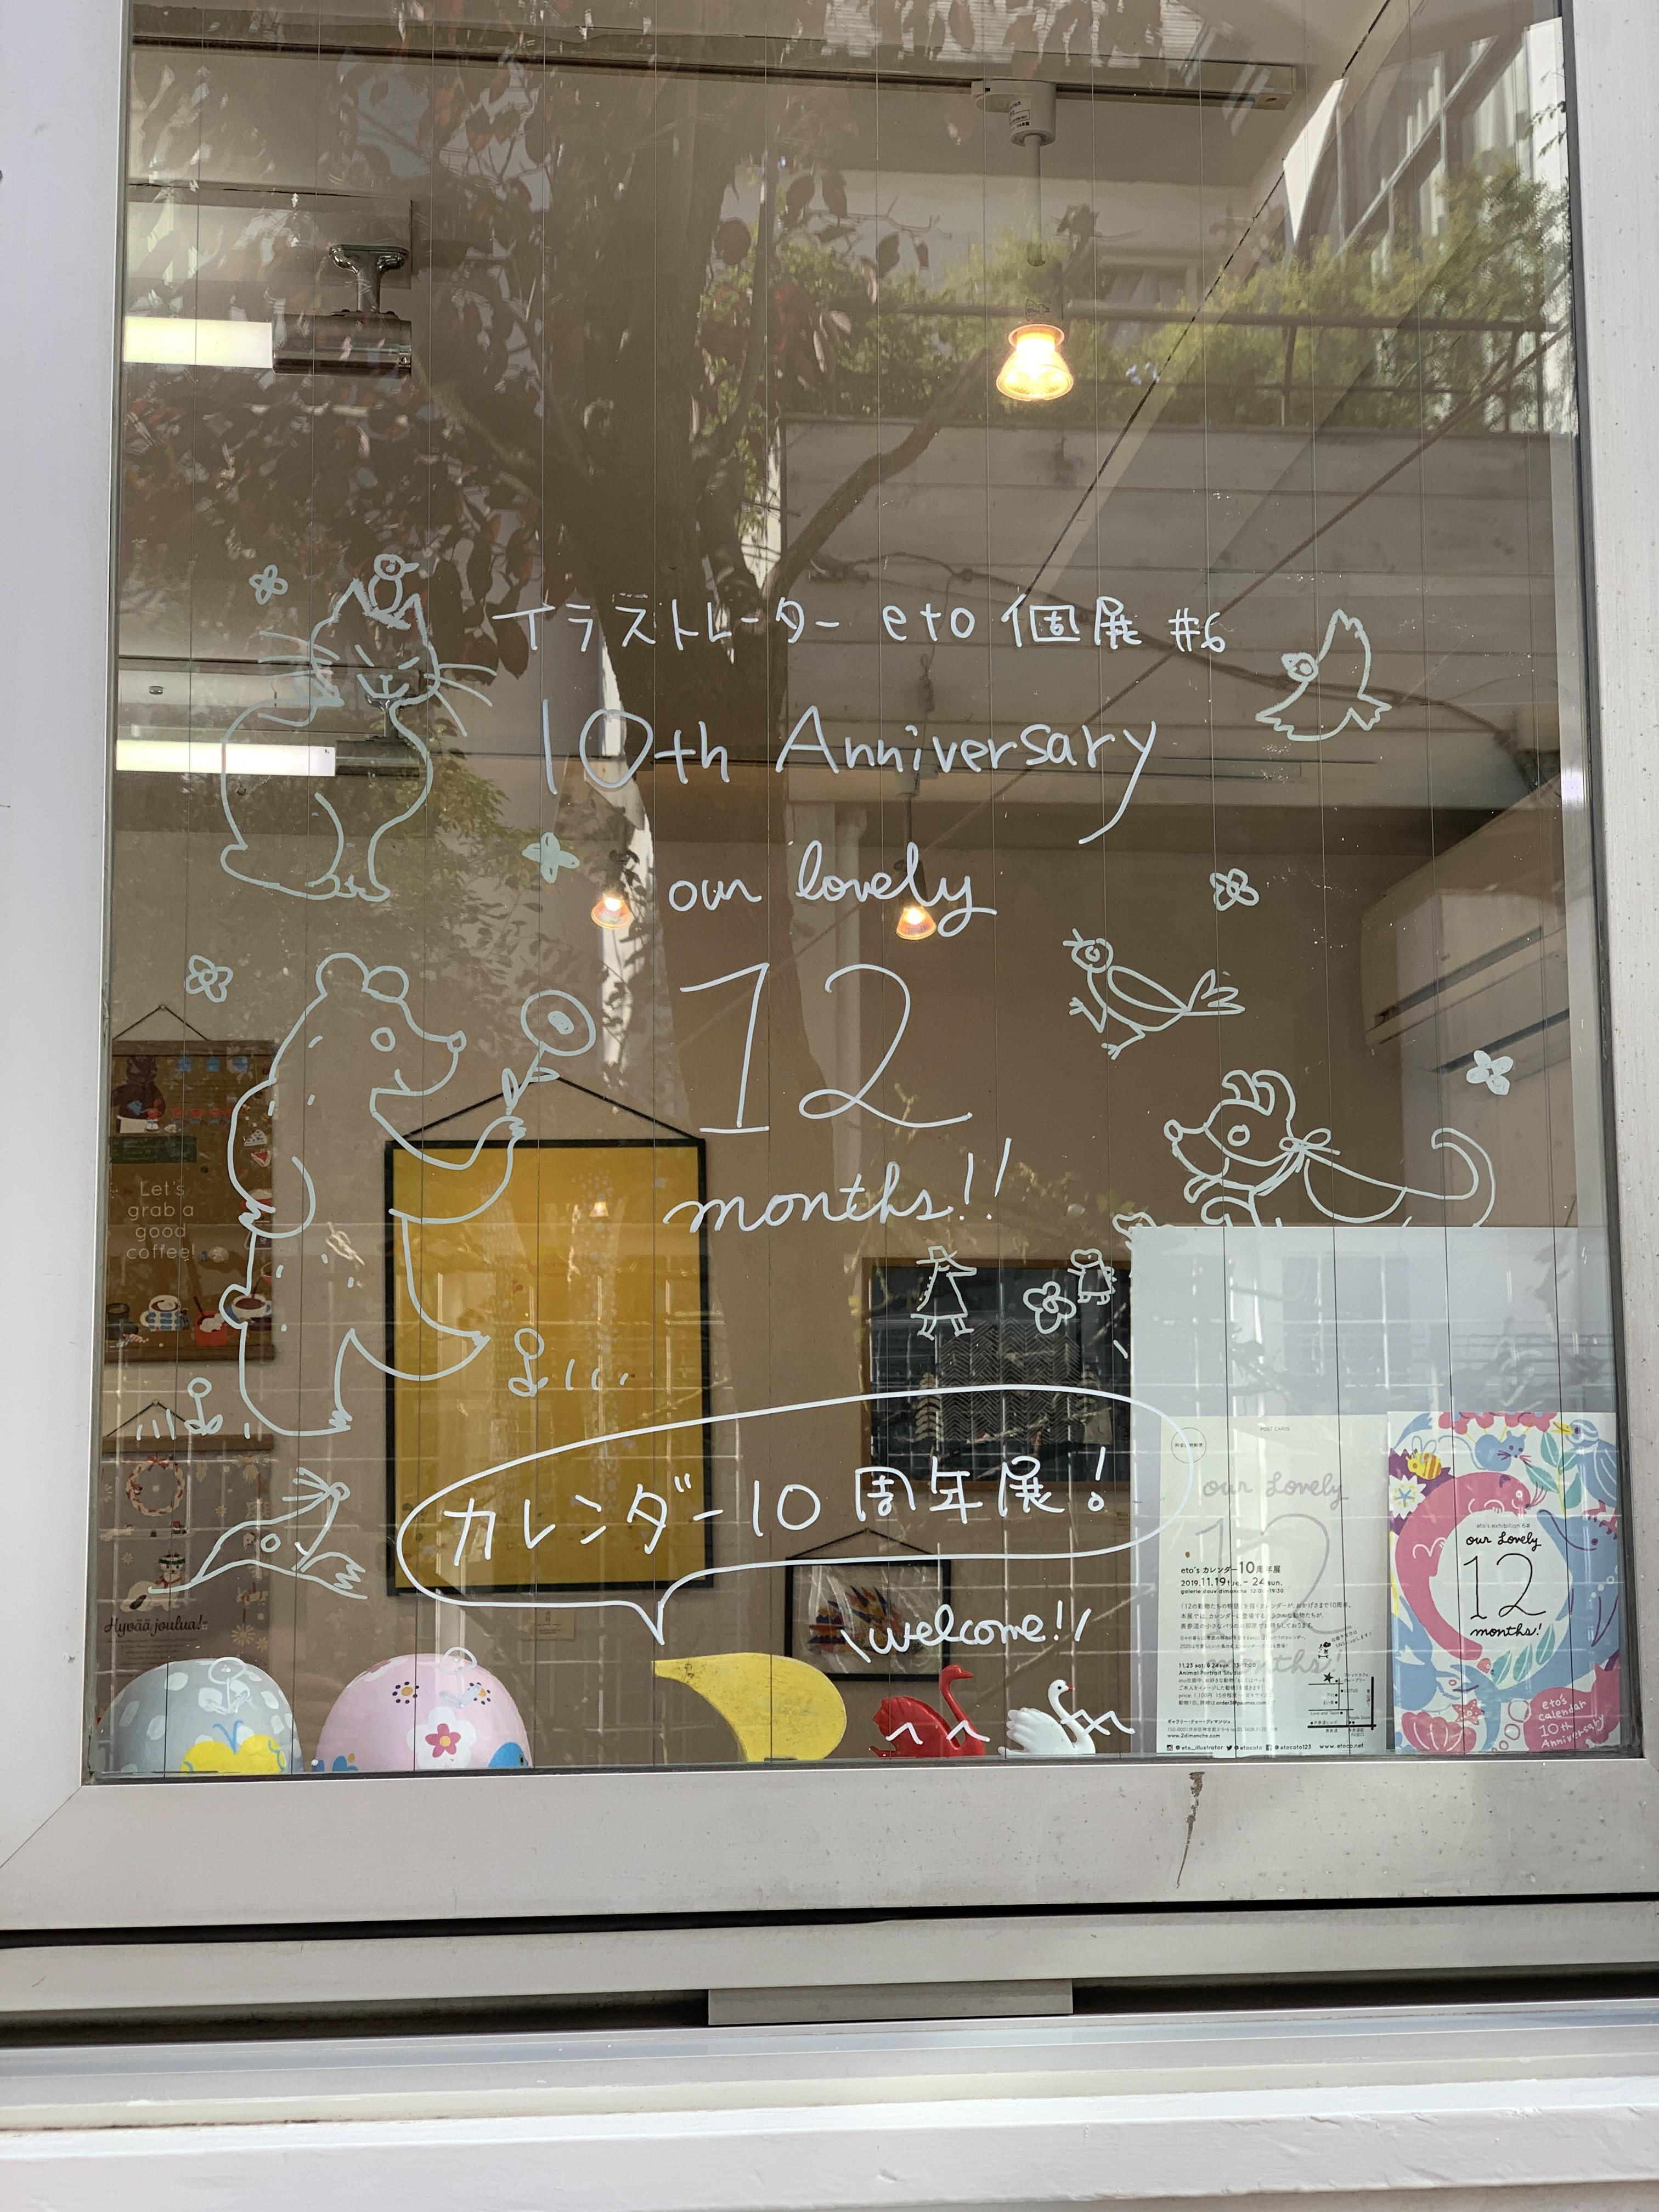 イラストレーター eto 個展 #6
10th Anniversary
our lovely
12
months!!
Let's
grab a
good
coffee!
カレンダー10周年展!
welcome!!
Hyvää joulua!
POST CARD
our Lovely
12
months!
eto's カレンダー10周年展
2019.11.19tue. - 24sun.
galerie doux dimanche 12:00-19:30
11.23 sat. & 24 sun.
Animal Portrait Studio
www.2dimanche.com
eto_illustrator etocoto etocoto123 www.etoco.net
eto's exhibition 6#
our Lovely
12
months!
eto's
calendar
10th
Anniversary